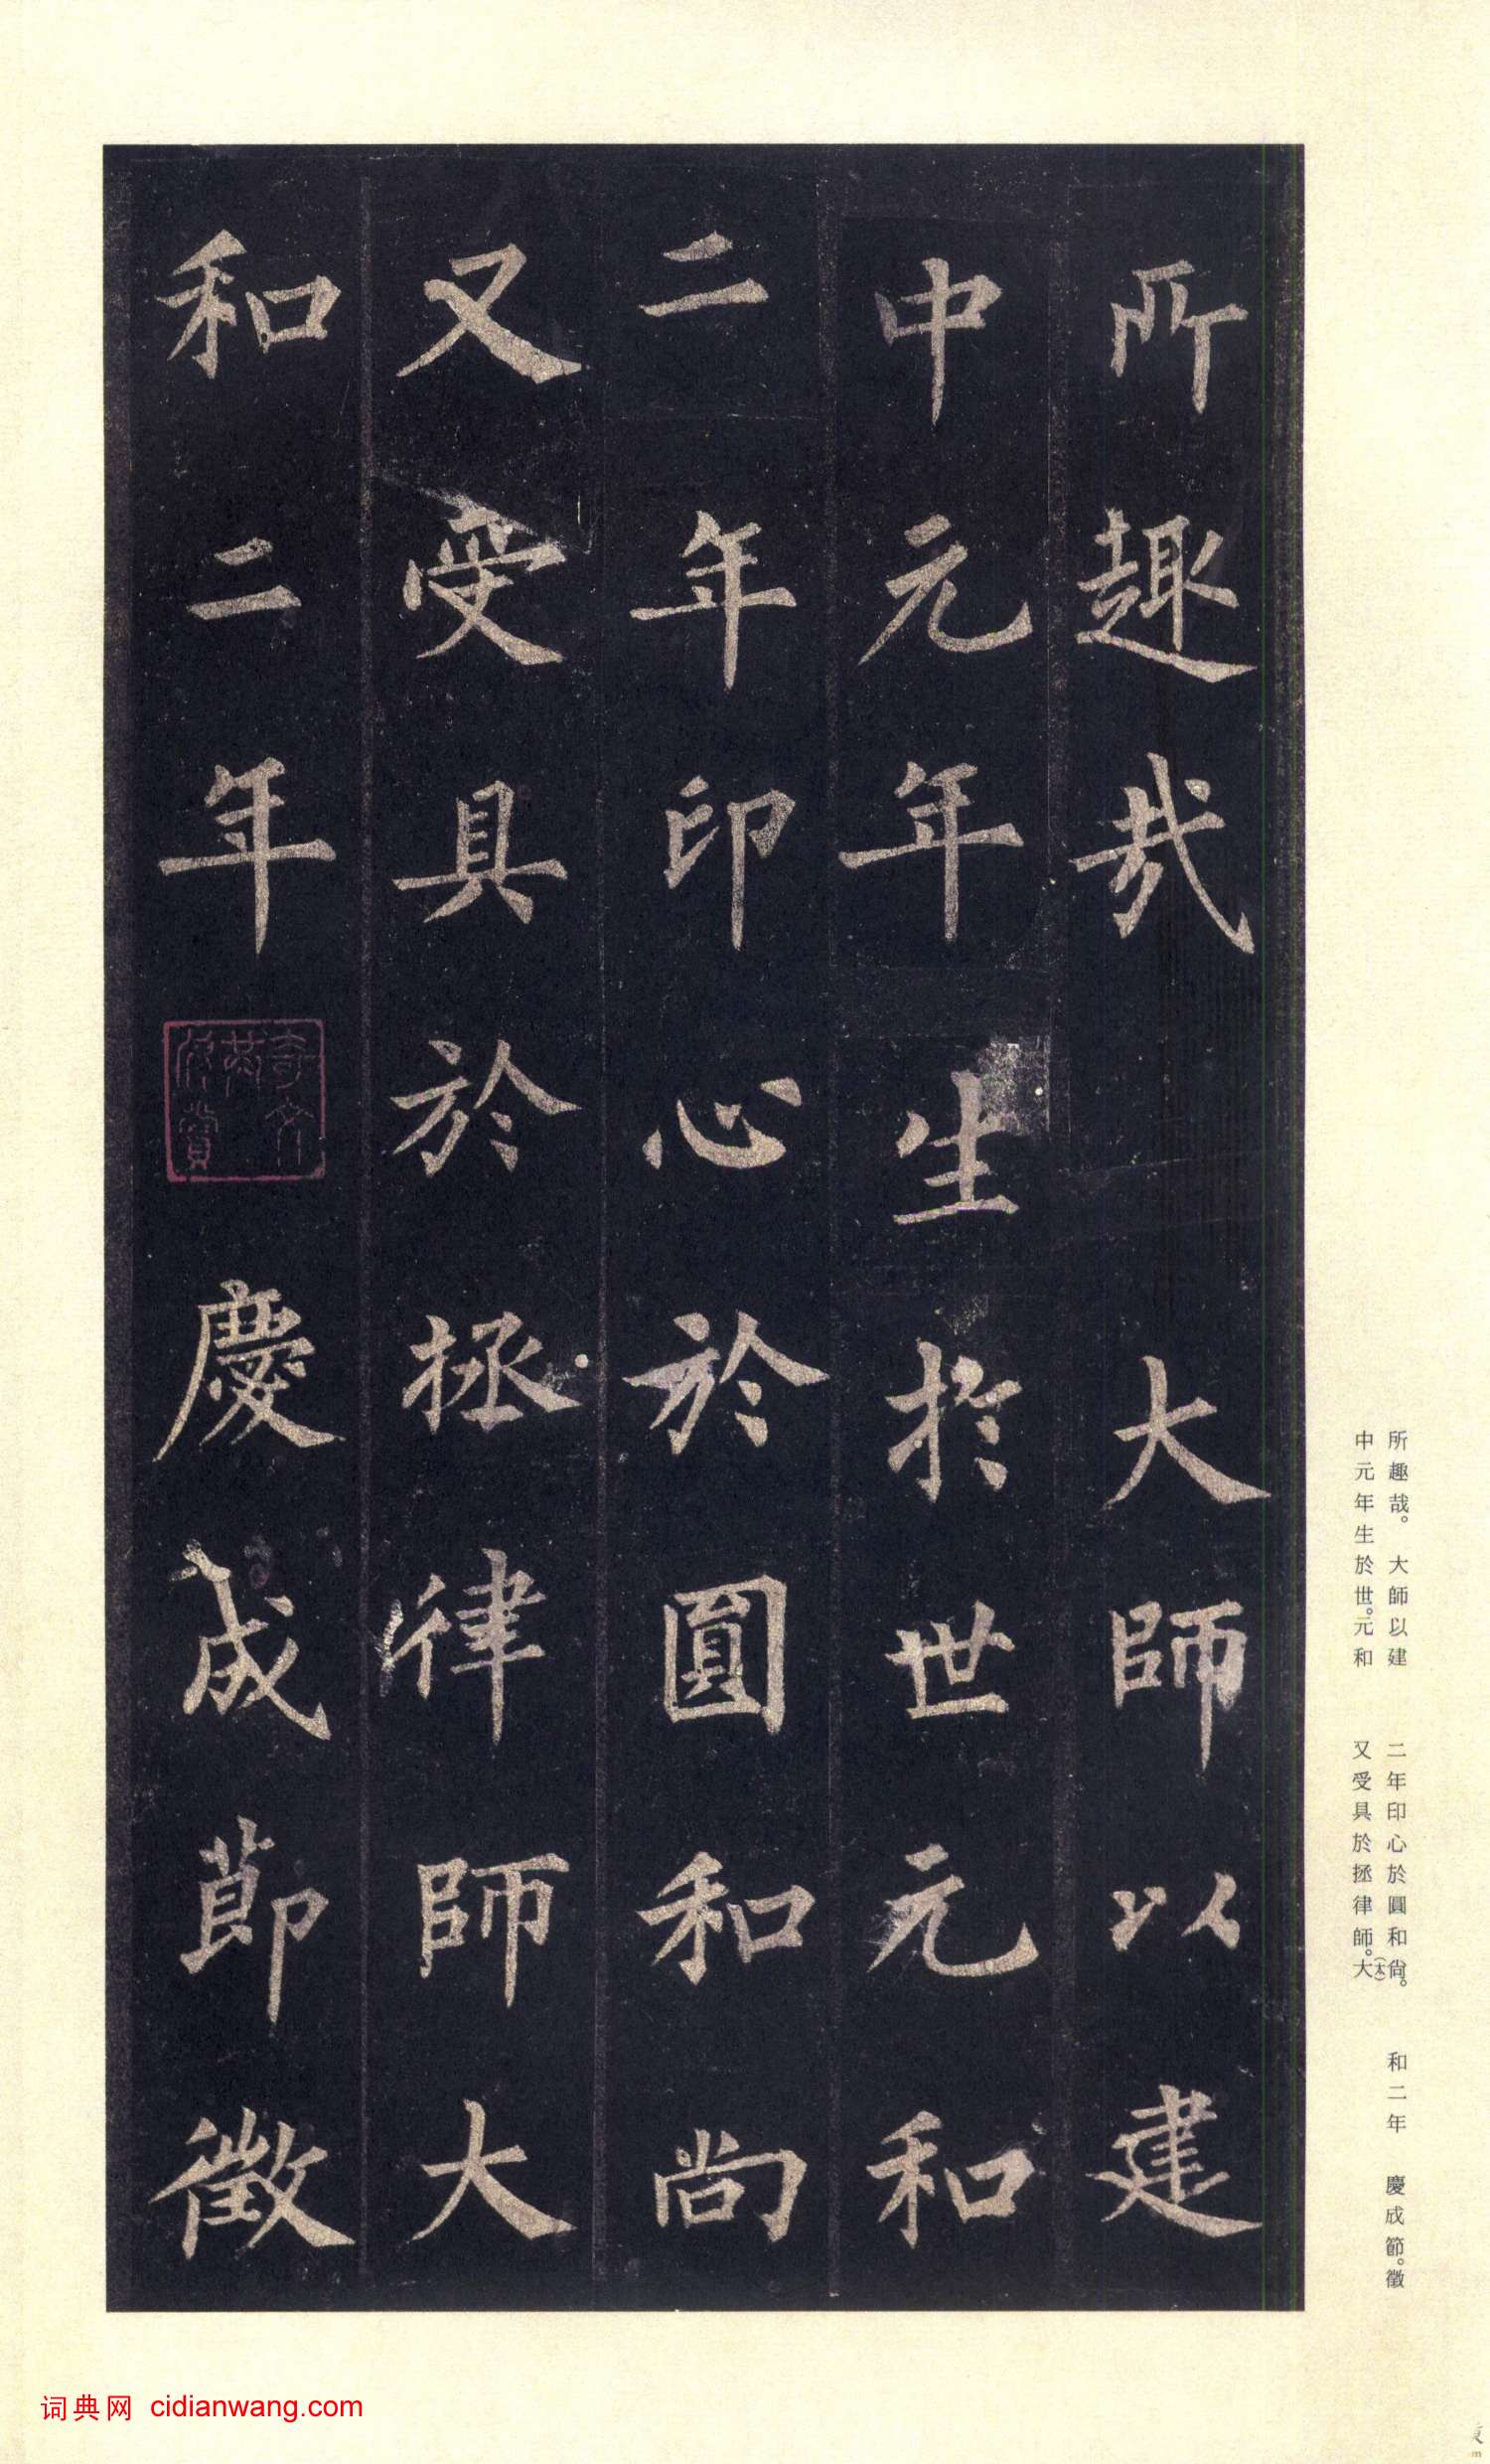 所趣哉大師以建
中元年生於世元和
二年印心於圓和尚
又受具於拯律師大
和二年慶成節徵
奇文
共
欣賞
所趣哉。大師以建
中元年生於世。元和
二年印心於圓和尚。
又受具於拯律師。大(太)
和二年 慶成節。徵
词典网 cidianwang.com